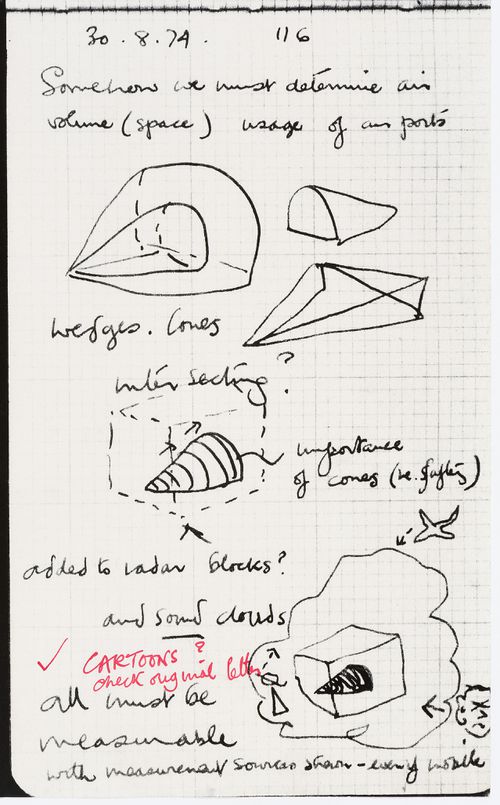 30.8.74. 116
Somehow we must determine air
volume (space) usage of air ports
wedges. Cones
intersecting?
importance
of cones (re. safety)
added to radar blocks?
and sound clouds
CARTOONS?
check original letter
all must be
measurable
with measurement sources shown - even mobile